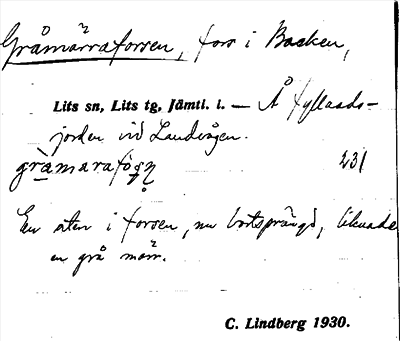 Gråmärraforsen, fors i Backen,
Lits sn, Lits tg, Jämtl. l. — Å
jorden vid Landvågen.
231
En sten i forsen, nu bortsprängd, liknade
en grå märr.
C. Lindberg 1930.